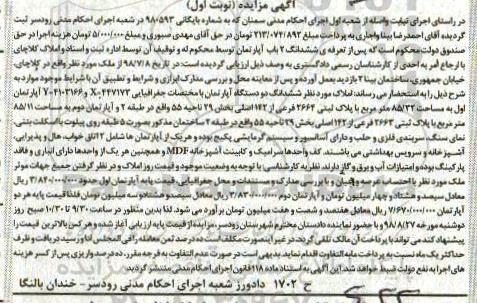 آگهی مزایده (نوبت اول)
در راستای اجرای نیابت واصله از شعبه اول اجرای احکام مدنی سمنان که به شماره بایگانی ۹۸۰۵۹۳ در شعبه اجرای احکام مدنی رودسر ثبت
گردیده آقای احمدرضا بینا واجاری به پرداخت مبلغ ۲۱۳/۰۷۴/۸۹۲ تومان در حق آقای مهدی صبوری و مبلغ ۵/۰۰۰/۰۰۰ تومان هزینه اجرا در حق
صندوق دولت محکوم است که پس از تعرفه ی ششدانگ ۲ باب آپارتمان توسط محکوم له و توقیف آن توسط اداره ثبت و اسناد و املاک کلاچای
با ارجاع امر به احدی از کارشناسان رسمی دادگستری به وصف ذیل ارزیابی گردیده است: در تاریخ ۹۸/۷/۸ از ملک مورد نظر واقع در کلاچای،
خیابان جمهوری، ساختمان بینا ۲ بازدید بعمل آورده و پس از معاینه محل و بررسی مدارک ابرازی و شرایط و تطبیق آن با شرایط موجود موارد به
شرح ذیل را به استحضار می رساند: املاک مورد نظر ششدانگ دو دستگاه آپارتمان با مختصات جغرافیایی X-۴۴۷۱۷۲ و Y-۴۱۰۳۱۶۶ آپارتمان
اول به مساحت ۸۵/۳۲ متر مربع با پلاک ثبتی ۲۶۶۲ فرعی از ۱۴۲ اصلی بخش ۲۹ ناحیه ۵۵ واقع در طبقه ۲ و آپارتمان دوم به مساحت ۸۵/۱۱
متر مربع با پلاک ثبتی ۲۶۶۳ فرعی از ۱۴۲ اصلی بخش ۲۹ ناحیه ۵۵ واقع در طبقه ۲ ساختمان مذکور بصورت ۵ طبقه روی پیلوت با اسکلت بتنی،
نمای سنگ، سربندی فلزی و حلب و دارای آسانسور و سیستم گرمایشی پکیج بوده و هریک از آپارتمان ها شامل ۲ اتاق خواب، هال و پذیرایی،
آشپزخانه و سرویس بهداشتی می باشند. کف واحدها سرامیک و کابینت آشپزخانه MDF و همچنین هر یک از واحدها دارای انباری و فاقد
پارکینگ بوده و امتیازات آب و برق و گاز دارند. نظریه کارشناسی با توجه به وضعیت موجود و قیمت روز املاک و در نظر گرفتن جمیع جهات موثر
ملک مورد نظر با احتساب عرصه و اعیان و با بررسی مدارک و مستندات و محل جغرافیایی قیمت پایه آپارتمان اول حدود ۳/۸۴۰/۰۰۰/۰۰۰ ریال
معادل سیصد و هشتاد و چهار میلیون تومان و آپارتمان دوم ۳/۸۳۰/۰۰۰/۰۰۰ ریال معادل سیصد و هشتاد و سه میلیون تومان فلذا قیمت پایه هر دو
آپارتمان ۷/۶۷۰/۰۰۰/۰۰۰ ریال معادل هفتصد و شصت و هفت میلیون تومان برآورده می شود. لذا بدین منظور در ساعت ۹/۳۰ تا ۱۰/۳۰ صبح روز
دوشنبه مورخه ۹۸/۸/۲۷ با حضور نماینده دادستان محترم شهرستان رودسر، مزایده از قیمت پایه ارزیابی آغاز شده و هر کس بالاترین قیمت را
پیشنهاد کند می تواند با پرداخت آن مالک تلقی گردد. در غیر اینصورت مکلف است ده درصد ثمن معامله را فی المجلس اداء و رسید دریافت و ظرف
حداکثر یک ماه نسبت به پرداخت مابه التفاوت اقدام نماید. بدیهی است در صورت عدم التفاوت به فرجه مقرر، ده درصد واریزی پس از کسر هزینه
های اجرا به نفع دولت ضبط خواهد شد. این آگهی به استناد ماده ۱۱۸ قانون اجرای احکام مدنی منتشر گردید.
ح ۱۷۰۲ دادورز شعبه اجرای احکام مدنی رودسر - خندان بالنگا